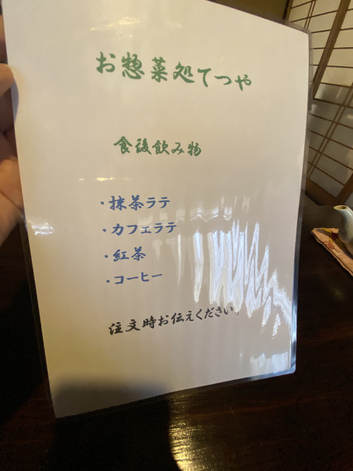 お惣菜処てつや
食後飲み物
・抹茶ラテ
・カフェラテ
・紅茶
・コーヒー
注文時お伝えください。